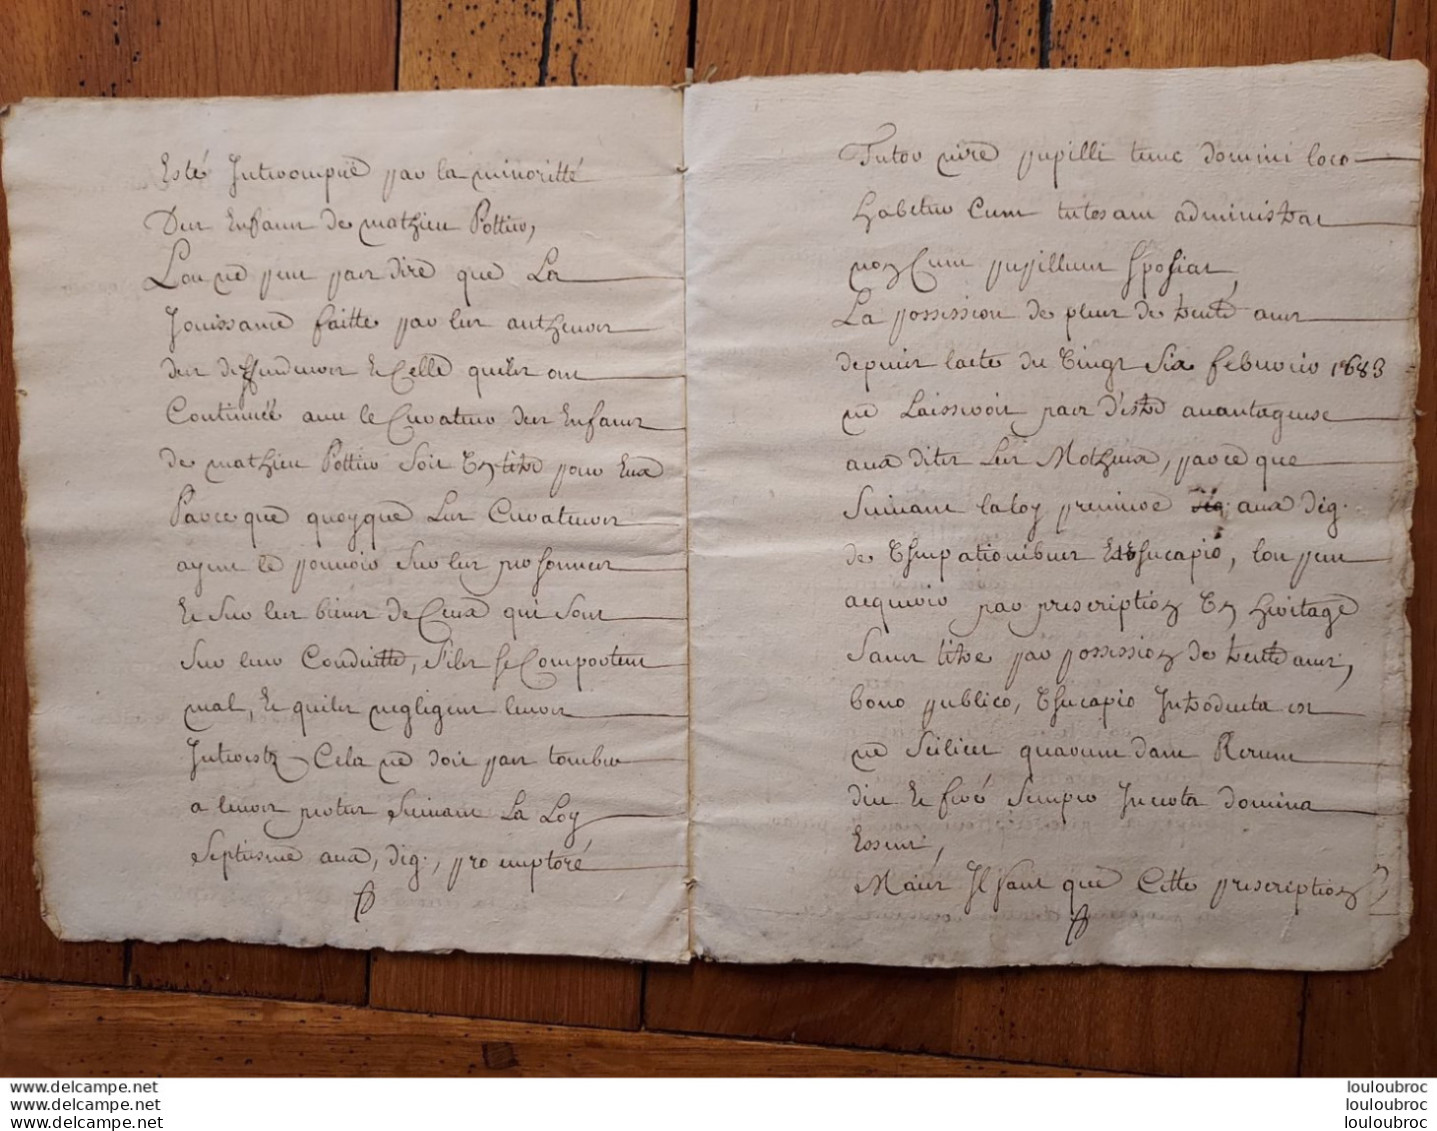 Esté Interrompüe par la minoritté
Des Enfans de mathieu Pottier,
L'on ne peut pas dire que La
Jouissance faitte par les autheurs
des deffendeurs et Celle qu'ils ont
Continuée avec le Curateur des Enfans
de mathieu Pottier soit un titre pour Eux
Parce que quoyque Les Curateurs
ayent le pouvoir sur les personnes
et sur les biens de Ceux qui sont
sur leur Conduitte, s'ils se Comportent
mal, et qu'ils negligent leurs
Interests Cela ne doit pas tomber
a leurs pertes suivant La Loy
Septiesme aux, dig., pro emptoré
Tutor in re pupilli tunc domini loco
habetur Cum tutelam administrat
non Cum pupillum spoliat,
La possession de plus de trente ans
depuis l'acte du vingt six febvrier 1683
ne Laisseroit pas d'estre avantageuse
aux dites Les Motheux, parce que
suivant la loy premiere aux dig.
de Usurpationibus et Usucapio, l'on peut
acquerir par prescription un heritage
sans titre par possession de trente ans,
bono publico, Usucapio Introducta est
ne scilicet quarumdam Rerum
diu et feré semper Incerta domina
Essent,
Mais Il faut que Cette prescription
louloubroc
louloubroc
louloubroc
delcampe.net
delcampe.net
delcampe.net